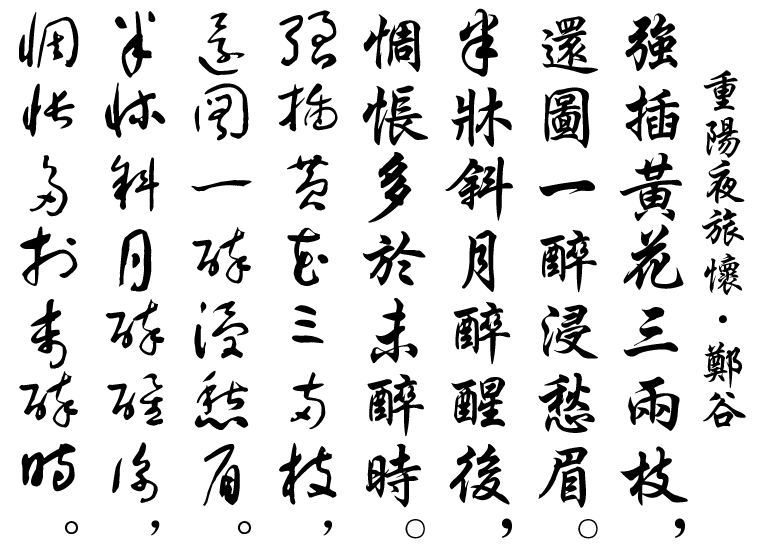 重陽夜旅懷・鄭谷
強插黃花三兩枝，
還圖一醉浸愁眉。
半牀斜月醉醒後，
惆悵多於未醉時。
強插黃花三兩枝，
還圖一醉浸愁眉。
半牀斜月醉醒後，
惆悵多於未醉時。